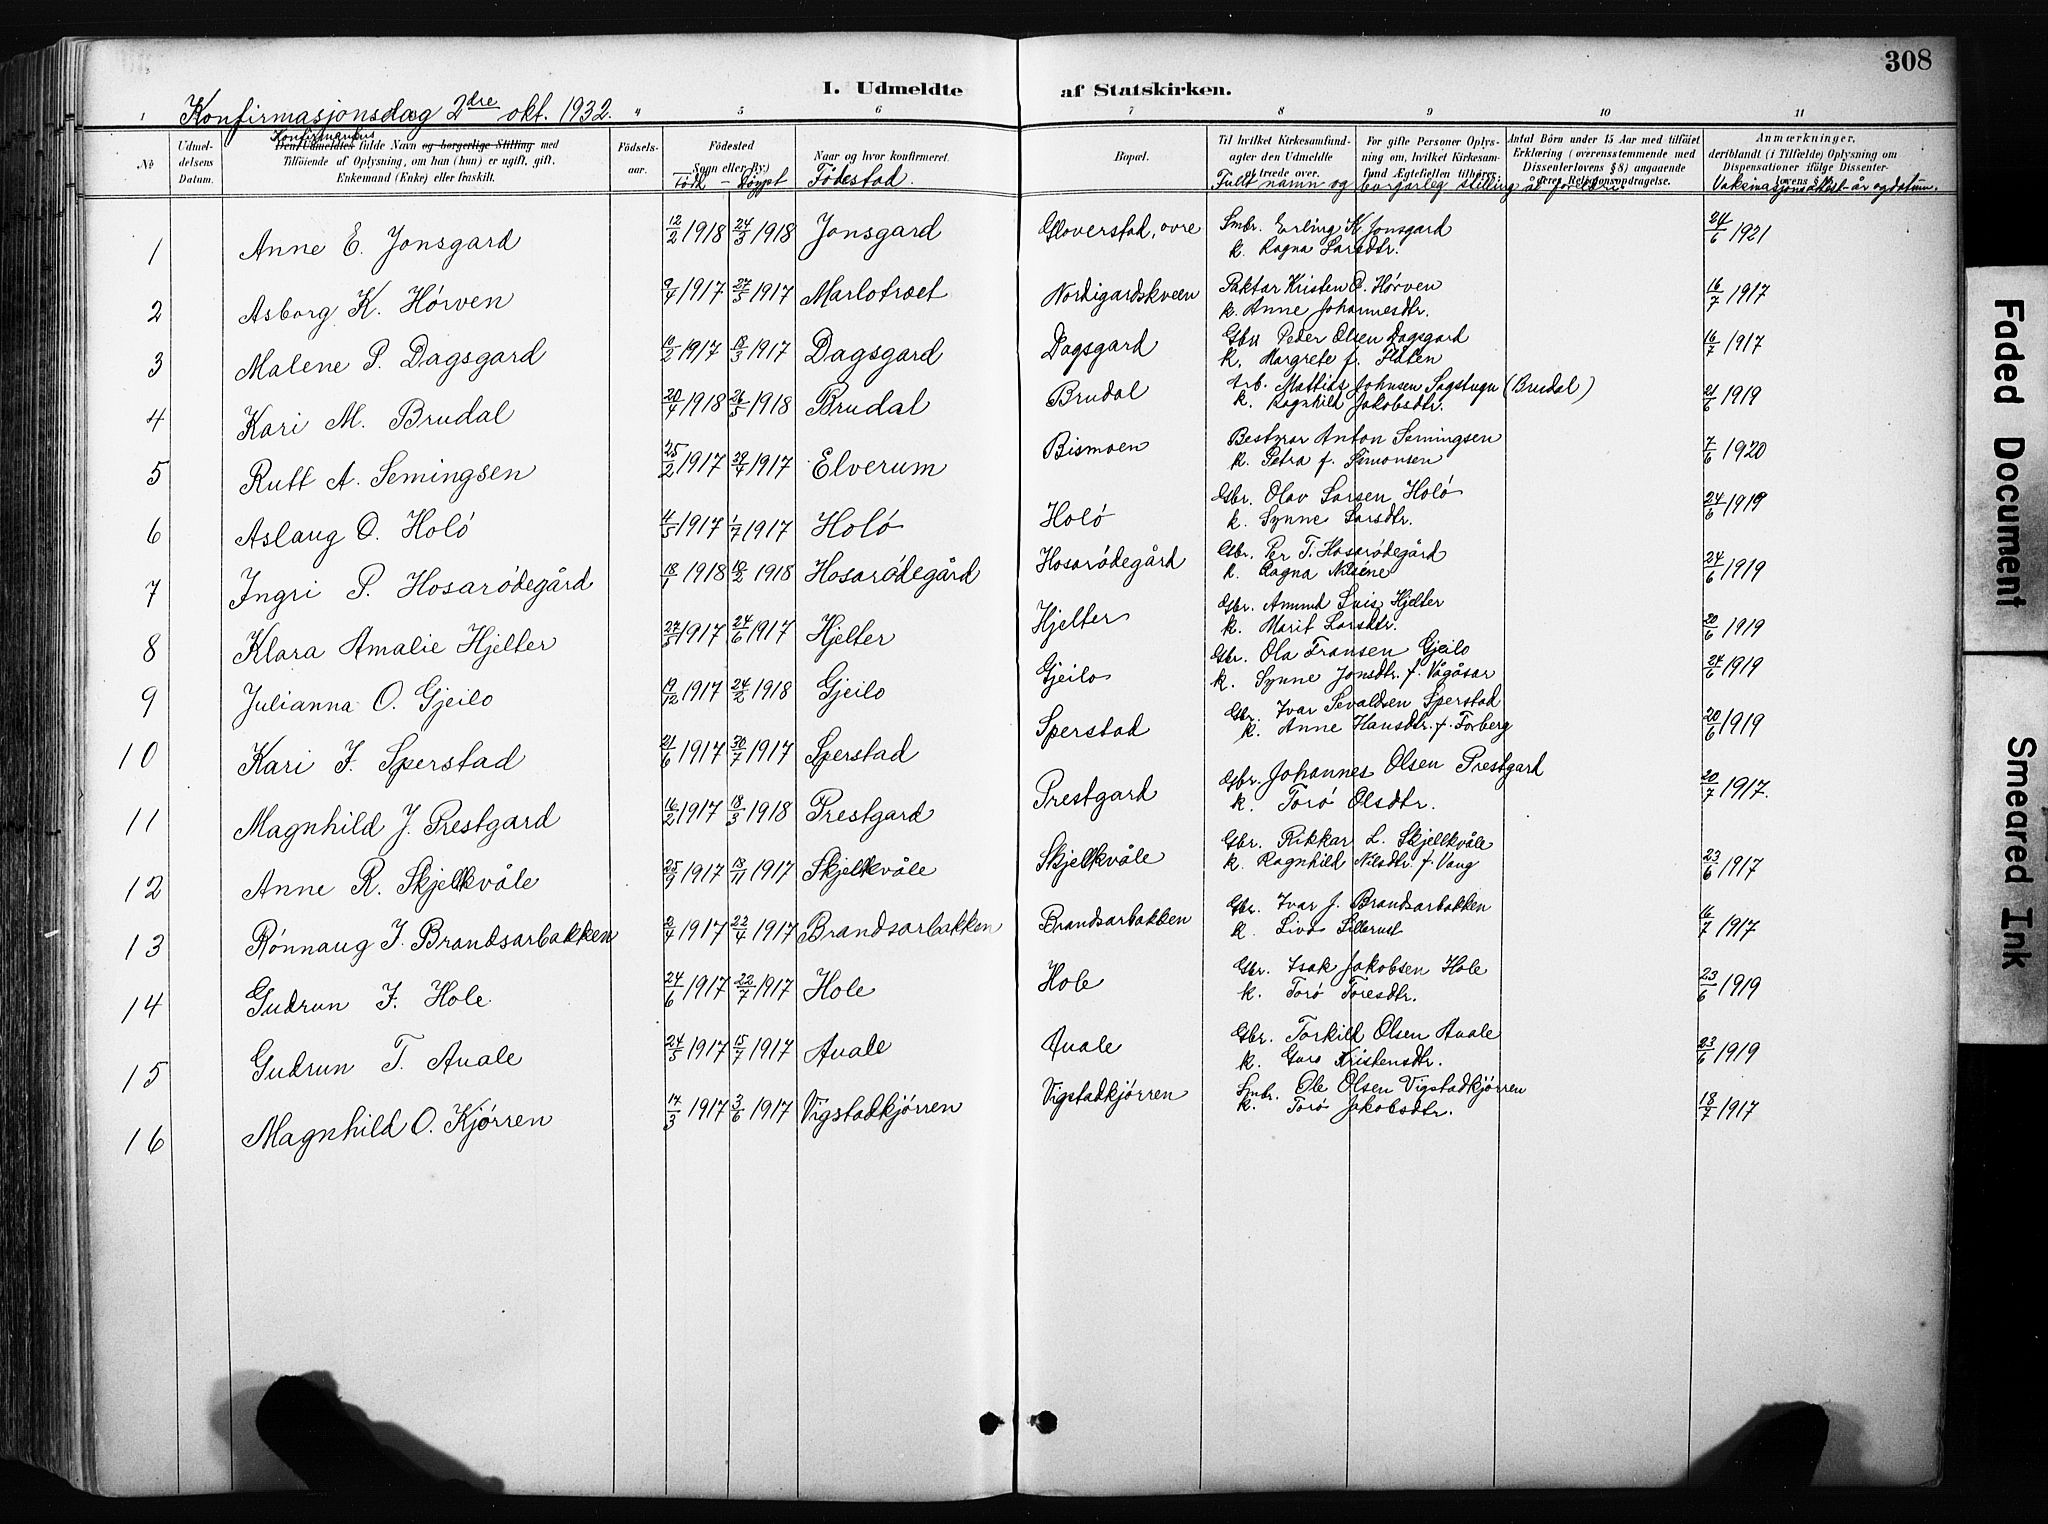 308
I. Udmeldte af Statskirken.
Konfirmasjonsdag 2dre okt. 1932.
1 " 5 6 7 8 9 10 11
No
Udmel-
delsens
Datum.
Konfirmandens
Den Udmeldtes fulde Navn og borgerlige Stilling med
Tilföiende af Oplysning, om han (hun) er ugift, gift,
Enkemand (Enke) eller fraskilt.
Födsels-
aar.
Födested
(Sogn eller By)
Född — Døypt
Naar og hvor konfirmeret.
Fødestad.
Bopæl.
Til hvilket Kirkesamfund
agter den Udmeldte
at træde over.
For gifte Personer Oplys-
ning om, hvilket Kirkesam-
fund Ægtefellen tilhører.
Fullt namn og borgarleg stilling åt foreldri
Antal Börn under 15 Aar med tilföiet
Erklæring (overensstemmende med
Dissenterlovens § 8) angaaende
deres Religionsopdragelse.
Anmærkninger,
deriblandt (i Tilfælde) Oplysning om
Dispensationer ifölge Dissenter-
lovens §
Vaksinasjonsattest år og datum.
1 Anne E. Jonsgard 12/2 1918 24/3 1918 Jonsgard Gloverstad, øvre Smbr. Erling K. Jonsgard 24/6 1921
k. Ragna Larsdtr.
2 Asborg K. Hørven 9/4 1917 27/5 1917 Marlotræet Nordigardskveen Paktar Kristen O. Hørven 16/7 1917
k. Anne Johannesdtr.
3 Malene P. Dagsgard 2 1917 18/3 1917 Dagsgard Dagsgard Gbr Peder Olsen Dagsgard 16/7 1917
k. Margrete f. Flåten
4 Kari M. Brudal 20/4 1918 26/5 1918 Brudal Brudal Arb. Mattias Johnsen Sagstugn (Brudal) 21/6 1919
k. Ragnhild Jakobsdtr.
5 Rutt A. Semingsen 25/2 1917 29/4 1917 Elverum Bismoen Bestyrar Anton Semingsen 7/6 1920
k. Petra f. Simonsen
6 Aslaug O. Holø 4/5 1917 1/7 1917 Holø Holø Gbr. Olav Larsen Holø 24/6 1919
k. Synne Larsdtr.
7 Ingri P. Hosarødegård 18/1 1918 10/2 1918 Hosarødegård Hosarødegård Gbr. Per T. Hosarødegård 24/6 1919
k. Ragna Nilsene
8 Klara Amalie Hjelter 27/5 1917 24/6 1917 Hjelter Hjelter Gbr. Amund Hjelter 20/6 1919
k. Marit Larsdtr.
9 Julianna O. Gjeilo 19/12 1917 24/2 1918 Gjeilo Gjeilo Gbr. Ola Fransen Gjeilo 24/6 1919
k. Synne Jonsdtr. f. Vågåsar
10 Kari I. Sperstad 21/6 1917 30/7 1917 Sperstad Sperstad Gbr. Ivar Sevaldsen Sperstad 20/6 1919
k. Anne Hansdtr. f. Forberg
11 Magnhild J. Prestgard 16/2 1917 18/3 1918 Prestgard Prestgard Gbr. Johannes Olsen Prestgard 20/7 1917.
k. Torø Olsdtr.
12 Anne R. Skjellkvåle 25/9 1917 18/11 1917 Skjellkvåle Skjellkvåle Gbr. Rikkar L. Skjellkvåle 23/6 1917
k. Ragnhild Nilsdtr. f. Vang
13 Rønnaug I. Brandsarbakken 2/4 1917 22/4 1917 Brandsarbakken Brandsarbakken Gbr. Ivar J. Brandsarbakken 16/7 1917
k. Liva Lillerust
14 Gudrun I. Hole 24/6 1917 22/7 1917 Hole Hole Gbr. Isak Jakobsen Hole 23/6 1919
k. Torø Toresdtr.
15 Gudrun T. Auale 24/5 1917 15/7 1917 Auale Auale Gbr. Torkild Olsen Auale 23/6 1919
k. Guro Kristensdtr.
16 Magnhild O. Kjørren 14/3 1917 3/6 1917 Vigstadkjørren Vigstadkjørren Smbr. Ole Olsen Vigstadkjørren 18/7 1917
k. Torø Jakobsdtr.
Faded Document
Smeared Ink